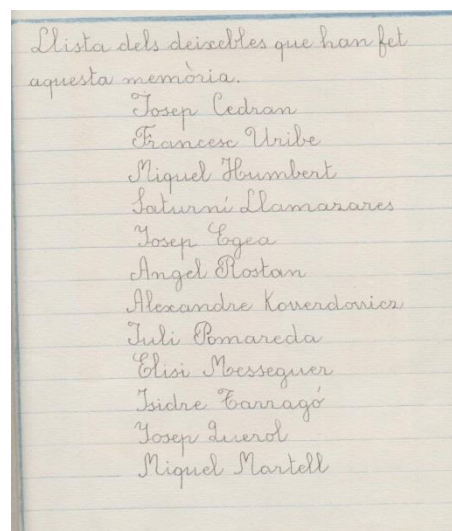 Llista dels deixebles que han fet
aquesta memòria.
Josep Cedran
Francesc Uribe
Miquel Humbert
Saturní Llamazares
Josep Egea
Angel Rostan
Alexandre
Juli Pomareda
Elisi Messeguer
Isidre Tarragó
Josep Querol
Miquel Martell